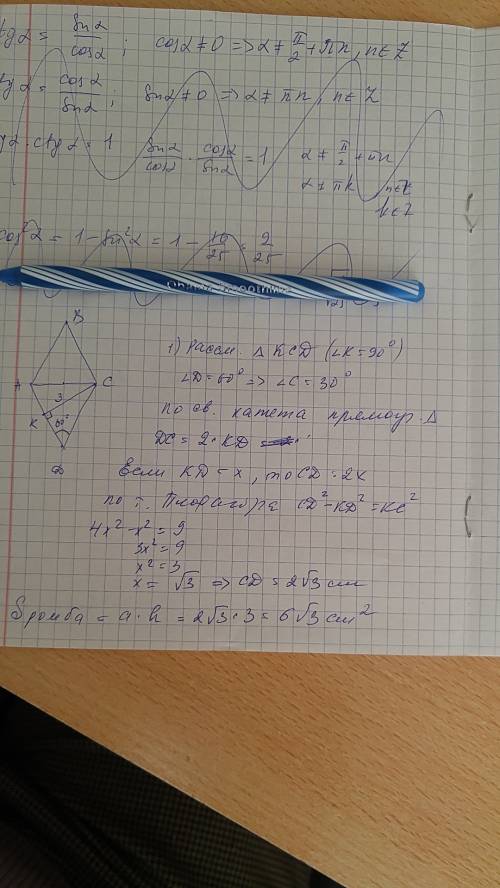 tgα = sinα/cosα ; cosα ≠ 0 => α ≠ π/2 + πn, n ∈ Z
ctgα = cosα/sinα ; sinα ≠ 0 => α ≠ πn, n ∈ Z
tgα · ctgα = 1 sinα/cosα · cosα/sinα = 1 α ≠ π/2 + πn
α ≠ πk n∈Z
k∈Z
cos²α = 1 - sin²α = 1 - 16/25 = 9/25
B
A
C
3
K
60°
D
1) Рассм. Δ KCD (∠K=90°)
∠D=60° => ∠C=30°
по св. катета прямоуг. Δ
DC = 2·KD
Если KD = x, то CD = 2x
по т. Пифагора CD² - KD² = KC²
4x² - x² = 9
3x² = 9
x² = 3
x = √3 => CD = 2√3 см
Sромба = a·h = 2√3·3 = 6√3 см²